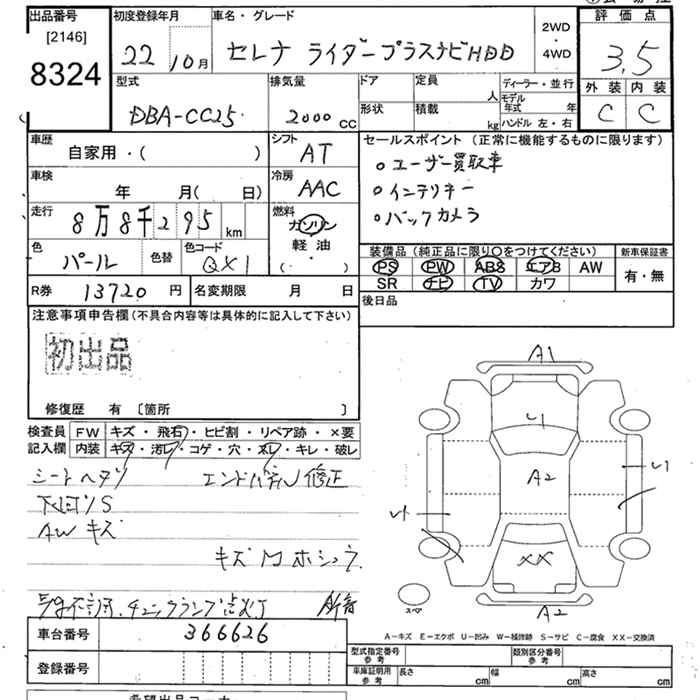 出品番号
[2146]
8324
初度登録年月
22 10月
車名・グレード
セレナ ライダープラスナビHDD
2WD
・
4WD
評価点
3.5
外装 内装
C C
型式
DBA-CC25
排気量
2000 CC
ドア
形状
定員
人
積載
kg
ディーラー・並行
モデル
年式 年
ハンドル 左・右
車歴
自家用・( )
シフト
AT
セールスポイント(正常に機能するものに限ります)
○ユーザー買取車
○インテリキー
○バックカメラ
車検
年 月( 日)
冷房
AAC
走行
8万8千295 km
燃料
ガソリン
軽油
(・ )
色
パール
色替
色コード
QX1
装備品(純正品に限り○をつけてください)
PS PW ABS エアB AW
SR ナビ TV カワ
新車保証書
有・無
R券 13720 円
名変期限 月 日
後日品
注意事項申告欄(不具合内容等は具体的に記入して下さい)
初出品
修復歴 有 [箇所 ]
検査員
記入欄
FW キズ・飛石・ヒビ割・リペア跡・×要
内装 キズ・汚レ・コゲ・穴・スレ・キレ・破レ
シートヘタリ エンドパネル修正
下回リS
AWキズ
チェックランプ点灯
A1
A2
XX
A2
スペア
A-キズ E-エクボ U-凹み W-補修跡 S-サビ C-腐食 XX-交換済
車台番号
366626
登録番号
型式指定番号
参考
類別区分番号
参考
車庫証明用
参考
長さ cm
幅 cm
高さ cm
希望出品コーナー